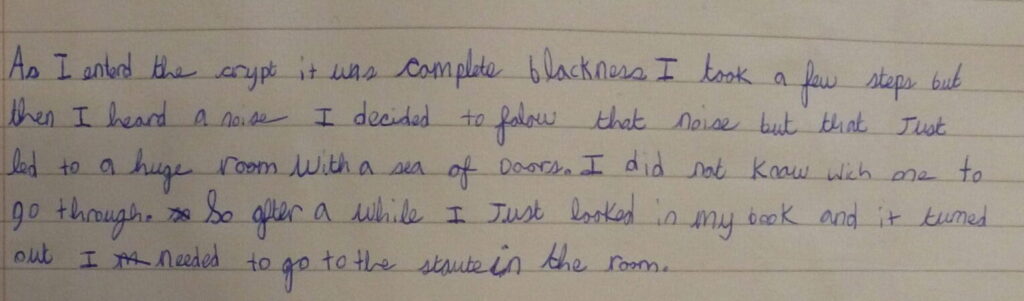 As I enterd the crypt it was complete blackness I took a few steps but
then I heard a noise I decided to folow that noise but that Just
led to a huge room with a sea of Doors. I did not know wich one to
go through. So after a while I Just looked in my book and it turned
out I needed to go to the staute in the room.